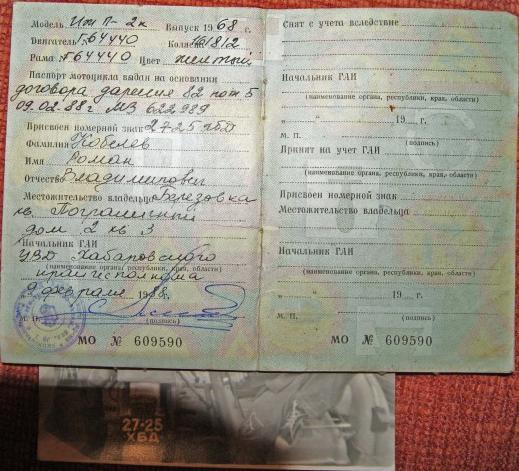 Модель Иж П-2к Выпуск 1968 г.
Двигатель Г64440 Коляска 161812
Рама Г64440 Цвет желтый
Паспорт мотоцикла выдан на основании
договора дарения
09.02.88г. МЗ 622989
Присвоен номерной знак 27-25 хбд
Фамилия
Имя Роман
Отчество Владимирович
Местожительство владельца Березовка
кв. Пограничный
дом 2 кв 3
Начальник ГАИ
УВД Хабаровского
(наименование органа, республики, края, области)
крайисполкома
9 февраля 1988 г.
М. П. (подпись)
МО № 609590
Снят с учета вследствие
Начальник ГАИ
(наименование органа, республики, края, области)
„ “ 19 г.
М. П. (подпись)
Принят на учет ГАИ
(наименование органа, республики, края, области)
Присвоен номерной знак
Местожительство владельца
Начальник ГАИ
(наименование органа, республики, края, области)
„ “ 19 г.
М. П. (подпись)
МО № 609590
27-25
ХБД